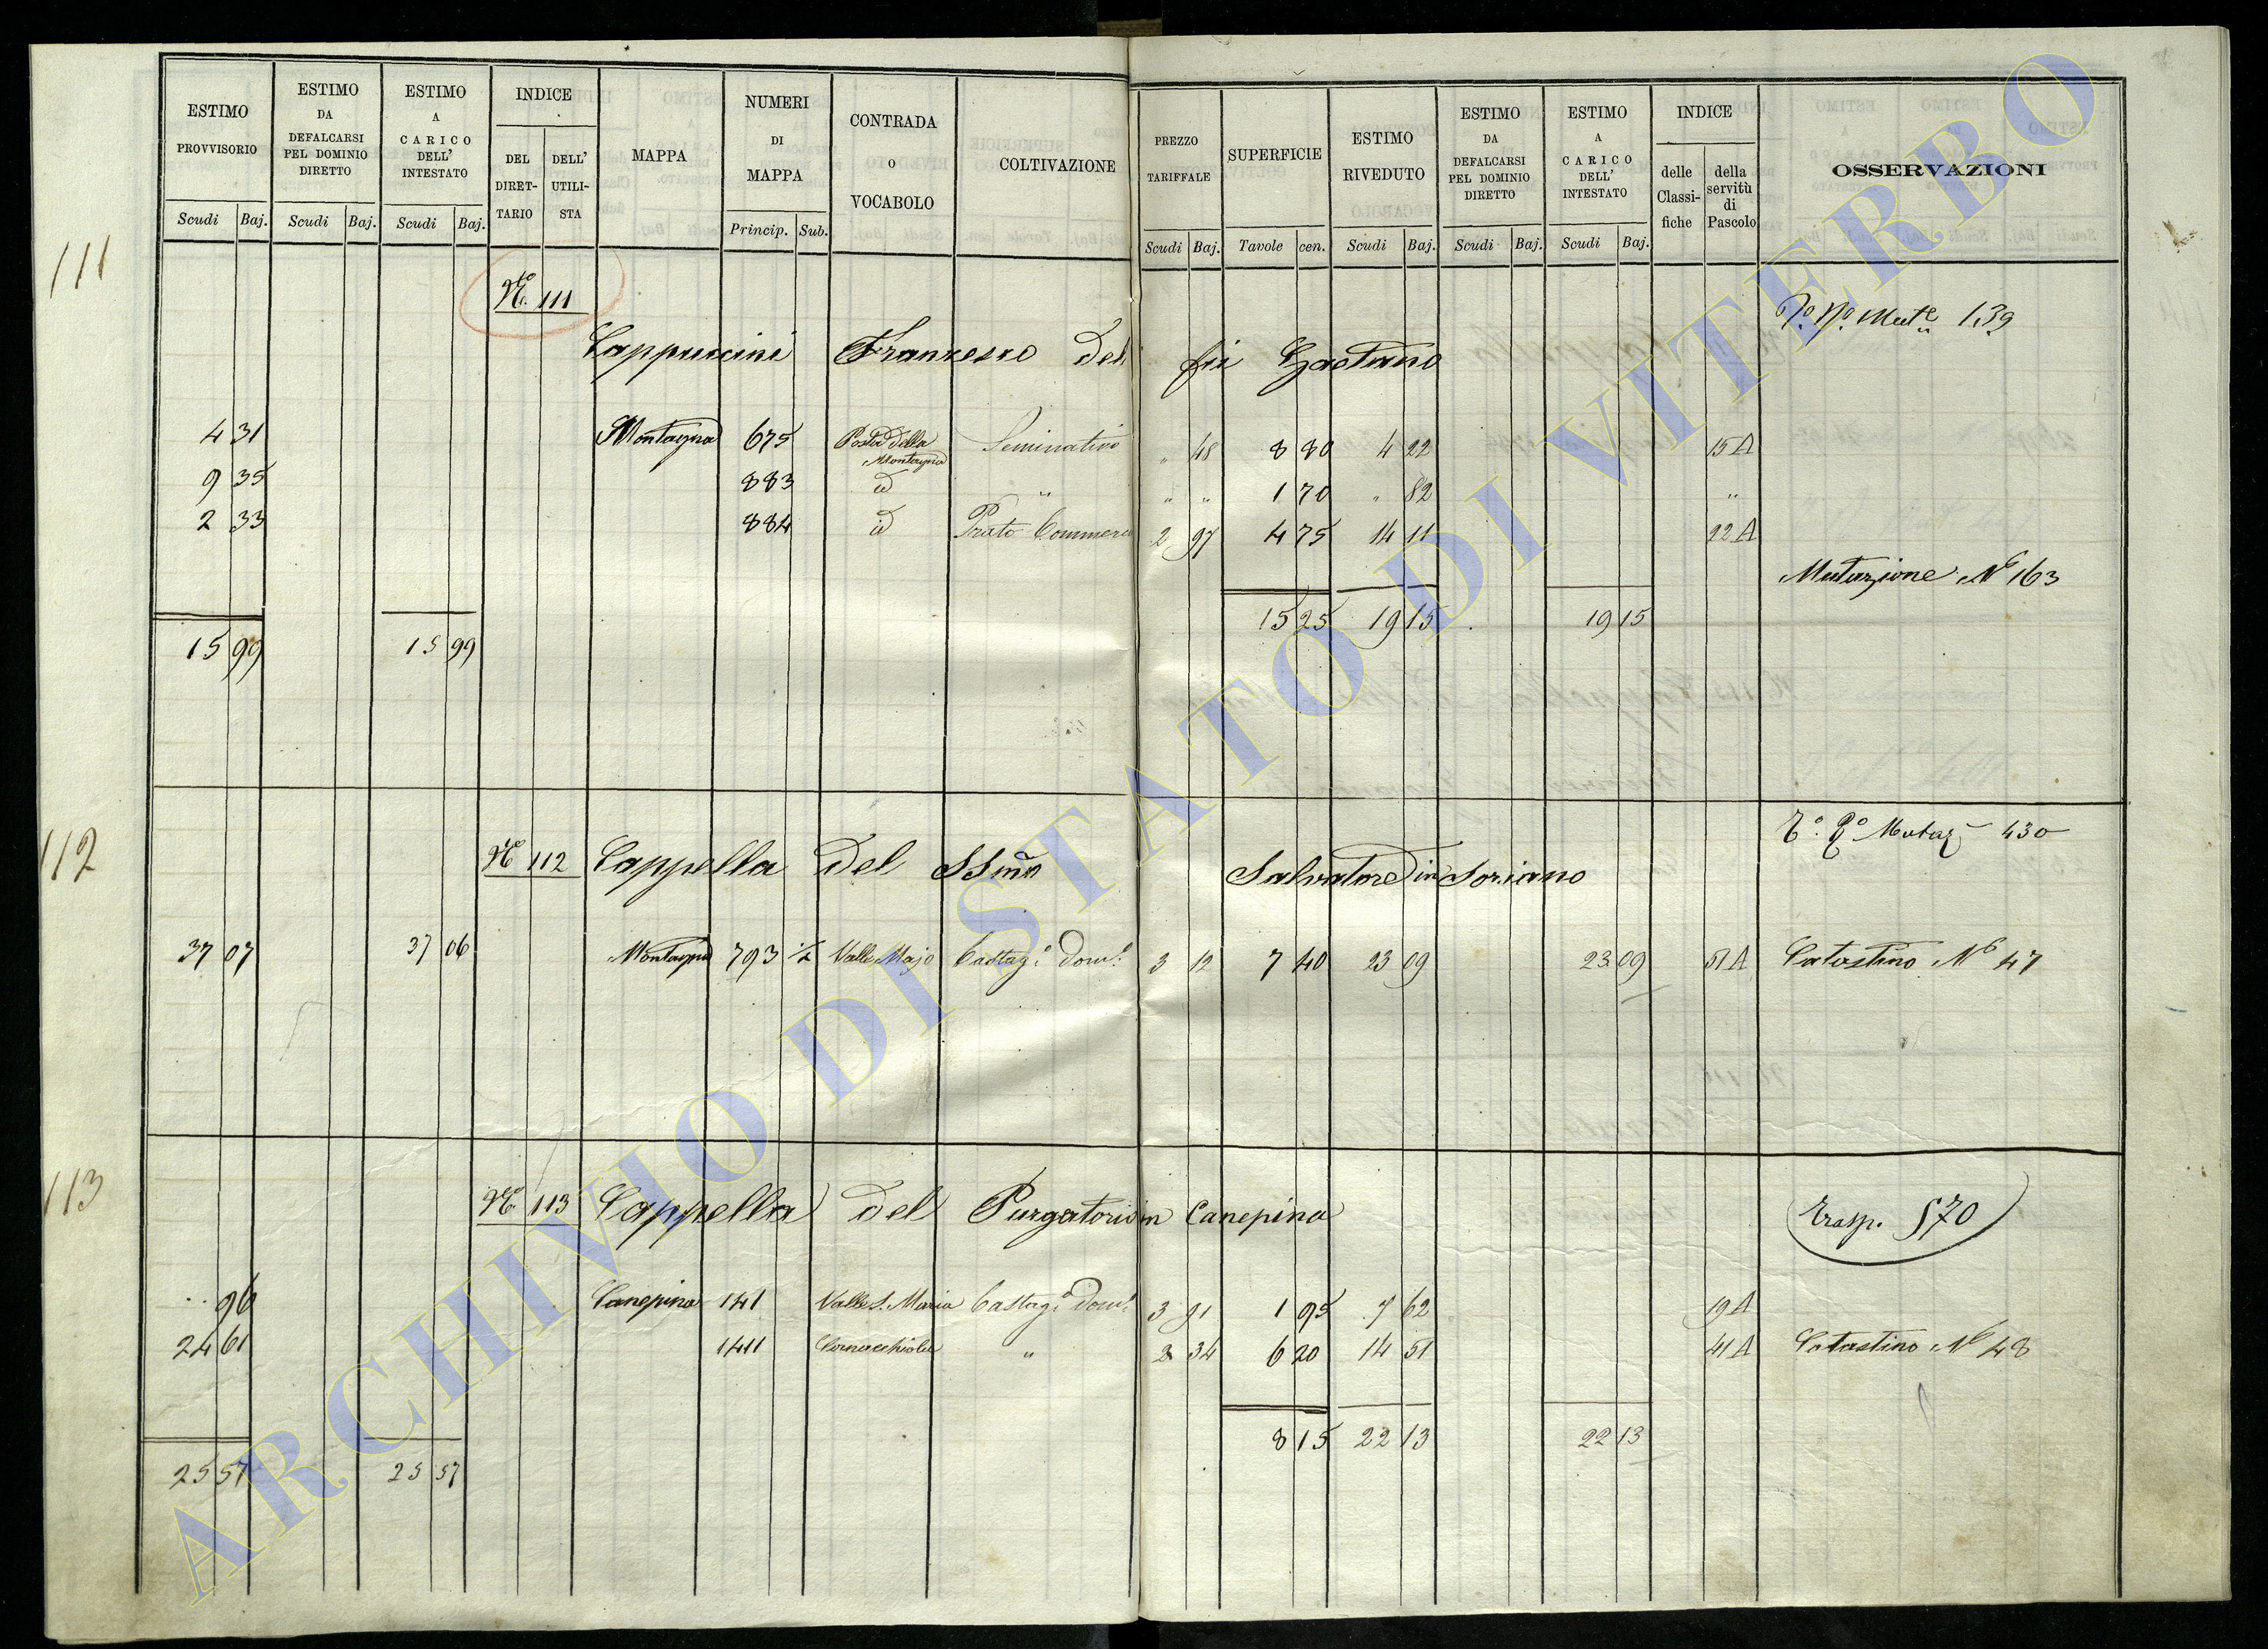 ESTIMO PROVVISORIO Scudi Baj.
ESTIMO DA DEFALCARSI PEL DOMINIO DIRETTO Scudi Baj.
ESTIMO A CARICO DELL' INTESTATO Scudi Baj.
INDICE DEL DIRET-TARIO DELL' UTILI-STA
MAPPA
NUMERI DI MAPPA Princip. Sub.
CONTRADA O VOCABOLO
COLTIVAZIONE
PREZZO TARIFFALE Scudi Baj.
SUPERFICIE Tavole cen.
ESTIMO RIVEDUTO Scudi Baj.
ESTIMO DA DEFALCARSI PEL DOMINIO DIRETTO Scudi Baj.
ESTIMO A CARICO DELL' INTESTATO Scudi Baj.
INDICE delle Classi-fiche della servitù di Pascolo
OSSERVAZIONI
111
No. 111
Cappuccini Francesco del fu Gaetano
139
4 31 Montagna 675 Posta della Montagna Seminativo " 48 8 80 4 22 15 A
9 35 883 id " " " 1 70 " 82 "
2 33 884 id Prato 2 97 4 75 14 11 22 A
Mutazione No 163
15 25 19 15 19 15
15 99 15 99
112
No 112 Cappella del SSmo Salvatore in Soriano
Mutaz 430
37 07 37 06 Montagna 793 1/2 Valle Majo Castago Domo 3 12 7 40 23 09 23 09 51 A Catastino No 47
113
No. 113 Cappella del Purgatorio in Canepina
Trasp. 570
96 Canepina 141 Valle S. Maria Castago Domo 3 91 1 95 7 62 19 A
24 61 1411 Cornacchiola " 2 34 6 20 14 51 41 A Catastino No 48
8 15 22 13 22 13
25 57 25 57
ARCHIVIO DI STATO DI VITERBO